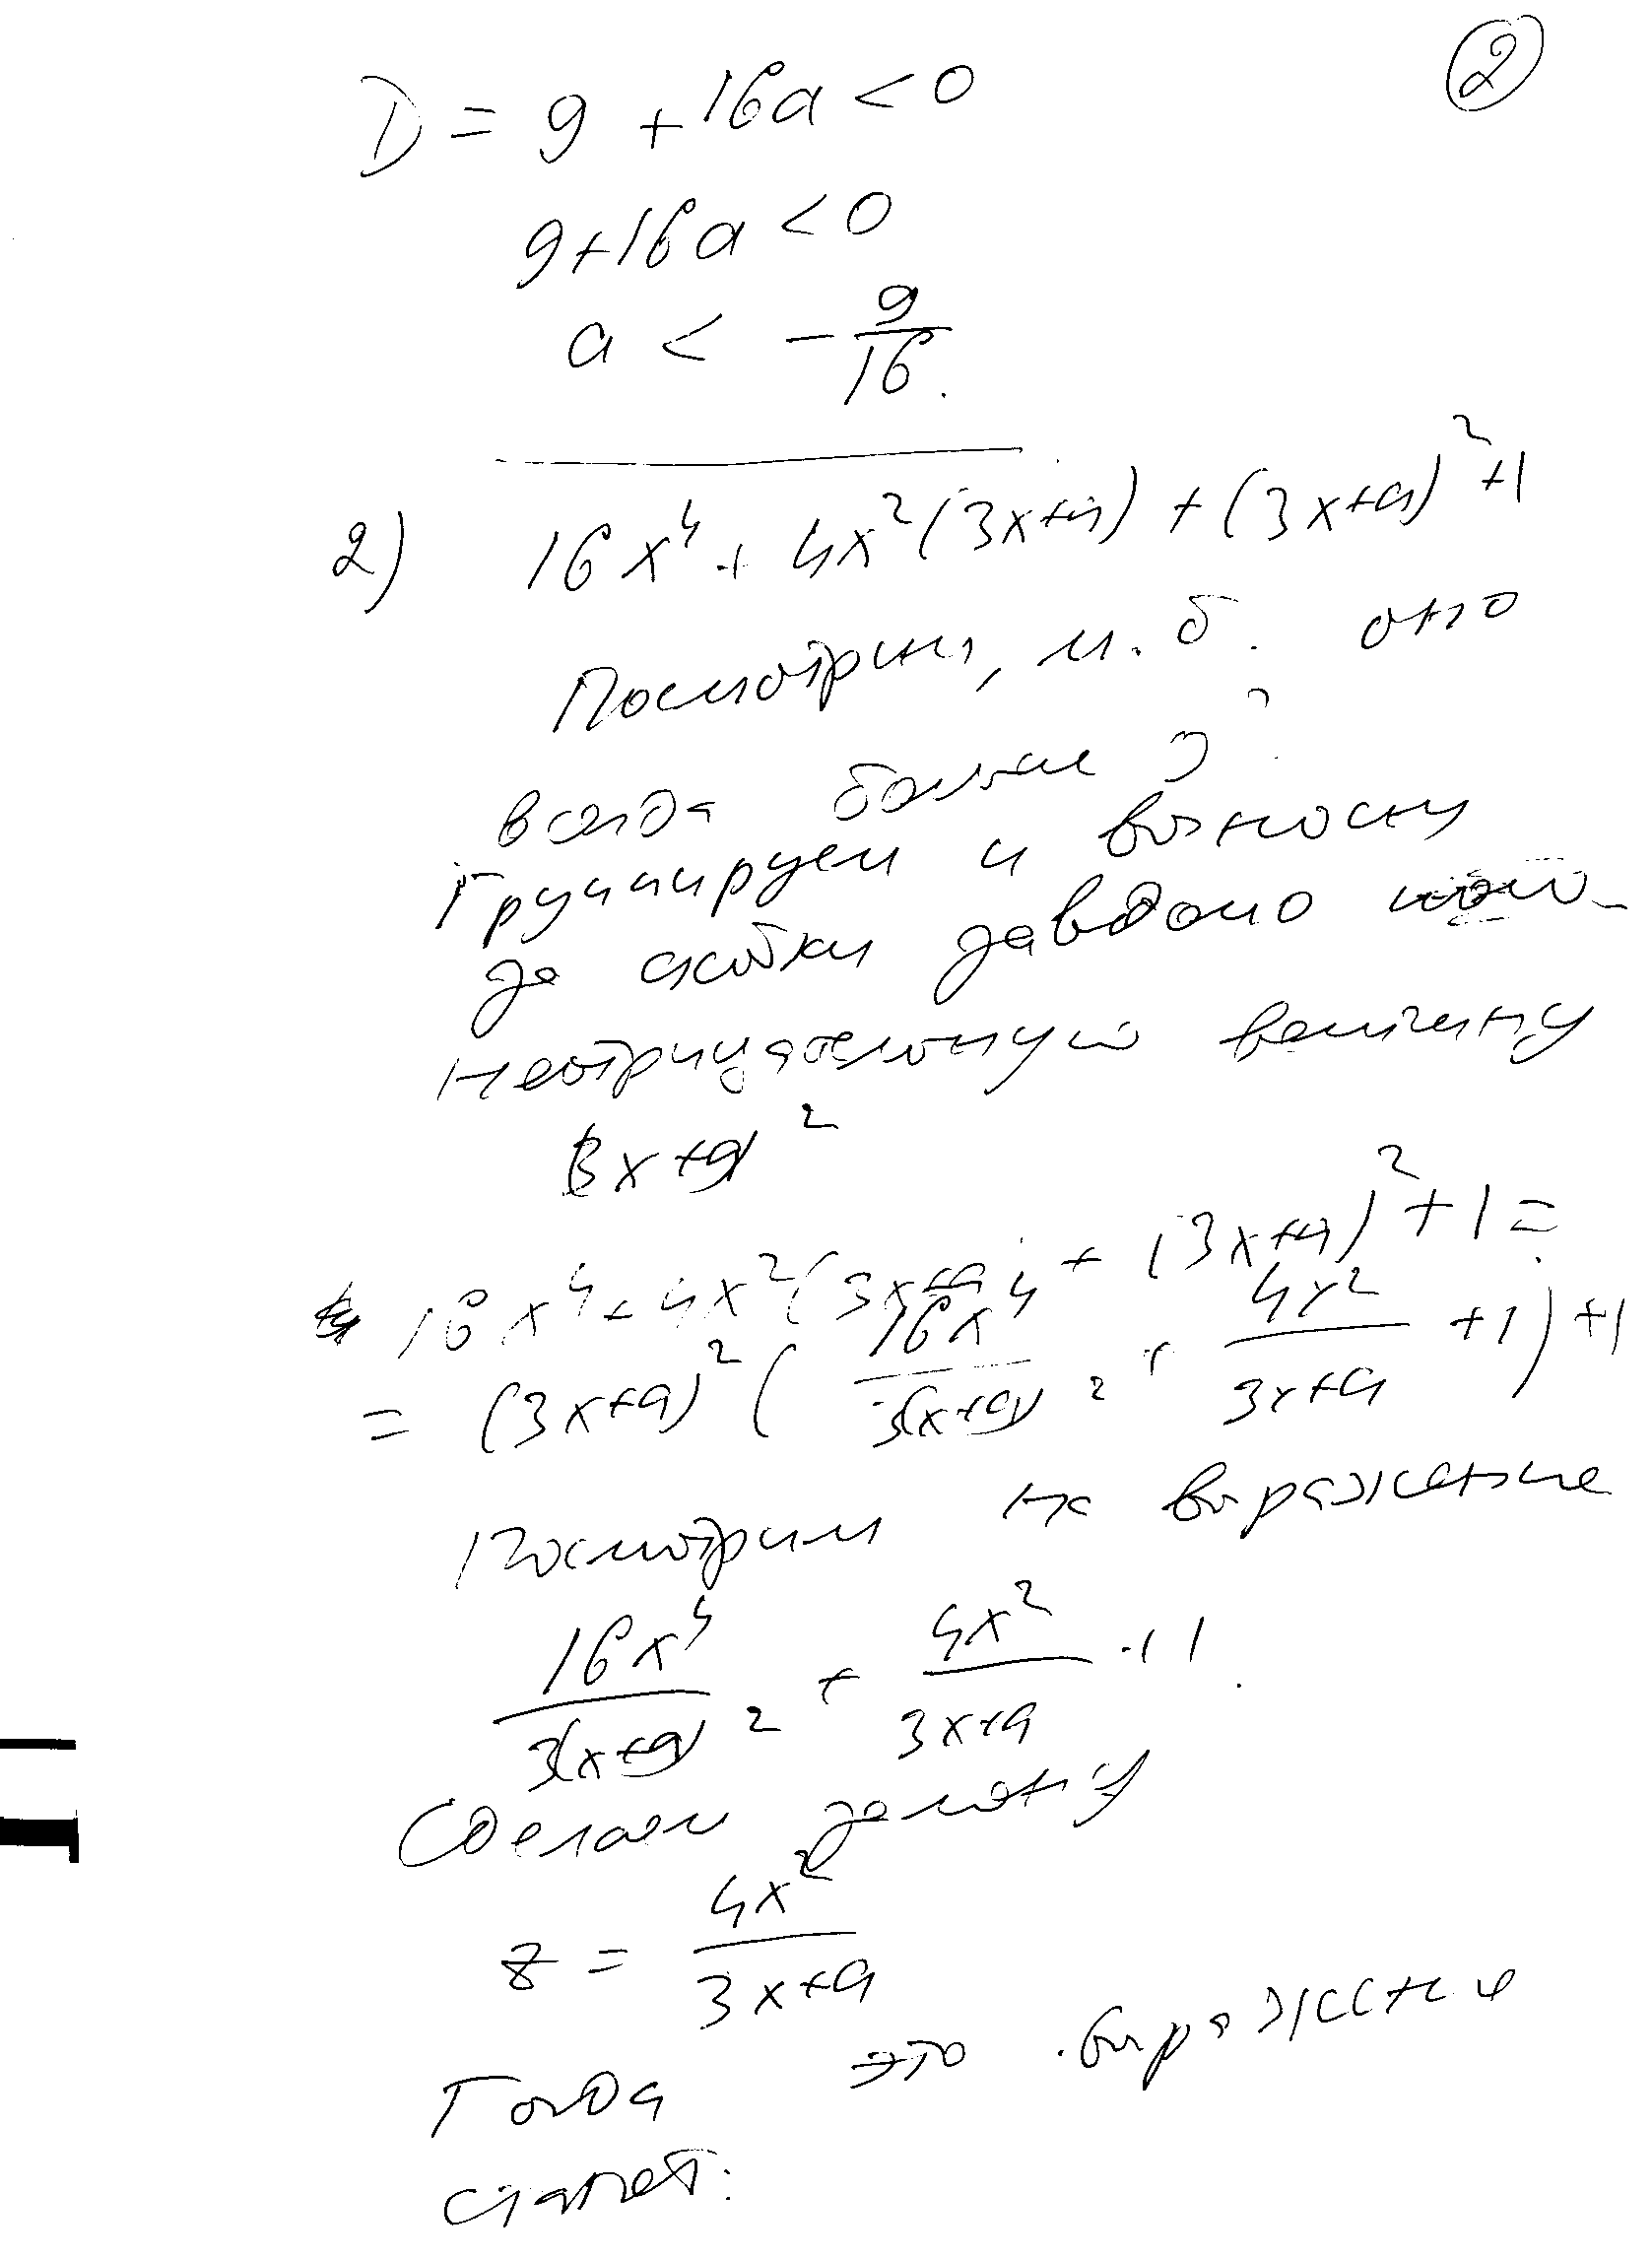 2
D = 9 + 16a < 0
9+16a < 0
a < - 9/16.
2) 16x⁴ + 4x²(3x+a) + (3x+a)² +1
Посмотрим, м.б. оно
всегда больше 0?
Группируем и выносим
за скобки заведомо
неотрицательную величину
(3x+a)²
16x⁴ + 4x²(3x+a) + (3x+a)² + 1 =
= (3x+a)² ( 16x⁴/(3x+a)² + 4x²/(3x+a) + 1 ) + 1
Посмотрим на выражение
16x⁴/(3x+a)² + 4x²/(3x+a) + 1.
Сделаем замену
z = 4x²/(3x+a)
Тогда это выражение
станет: